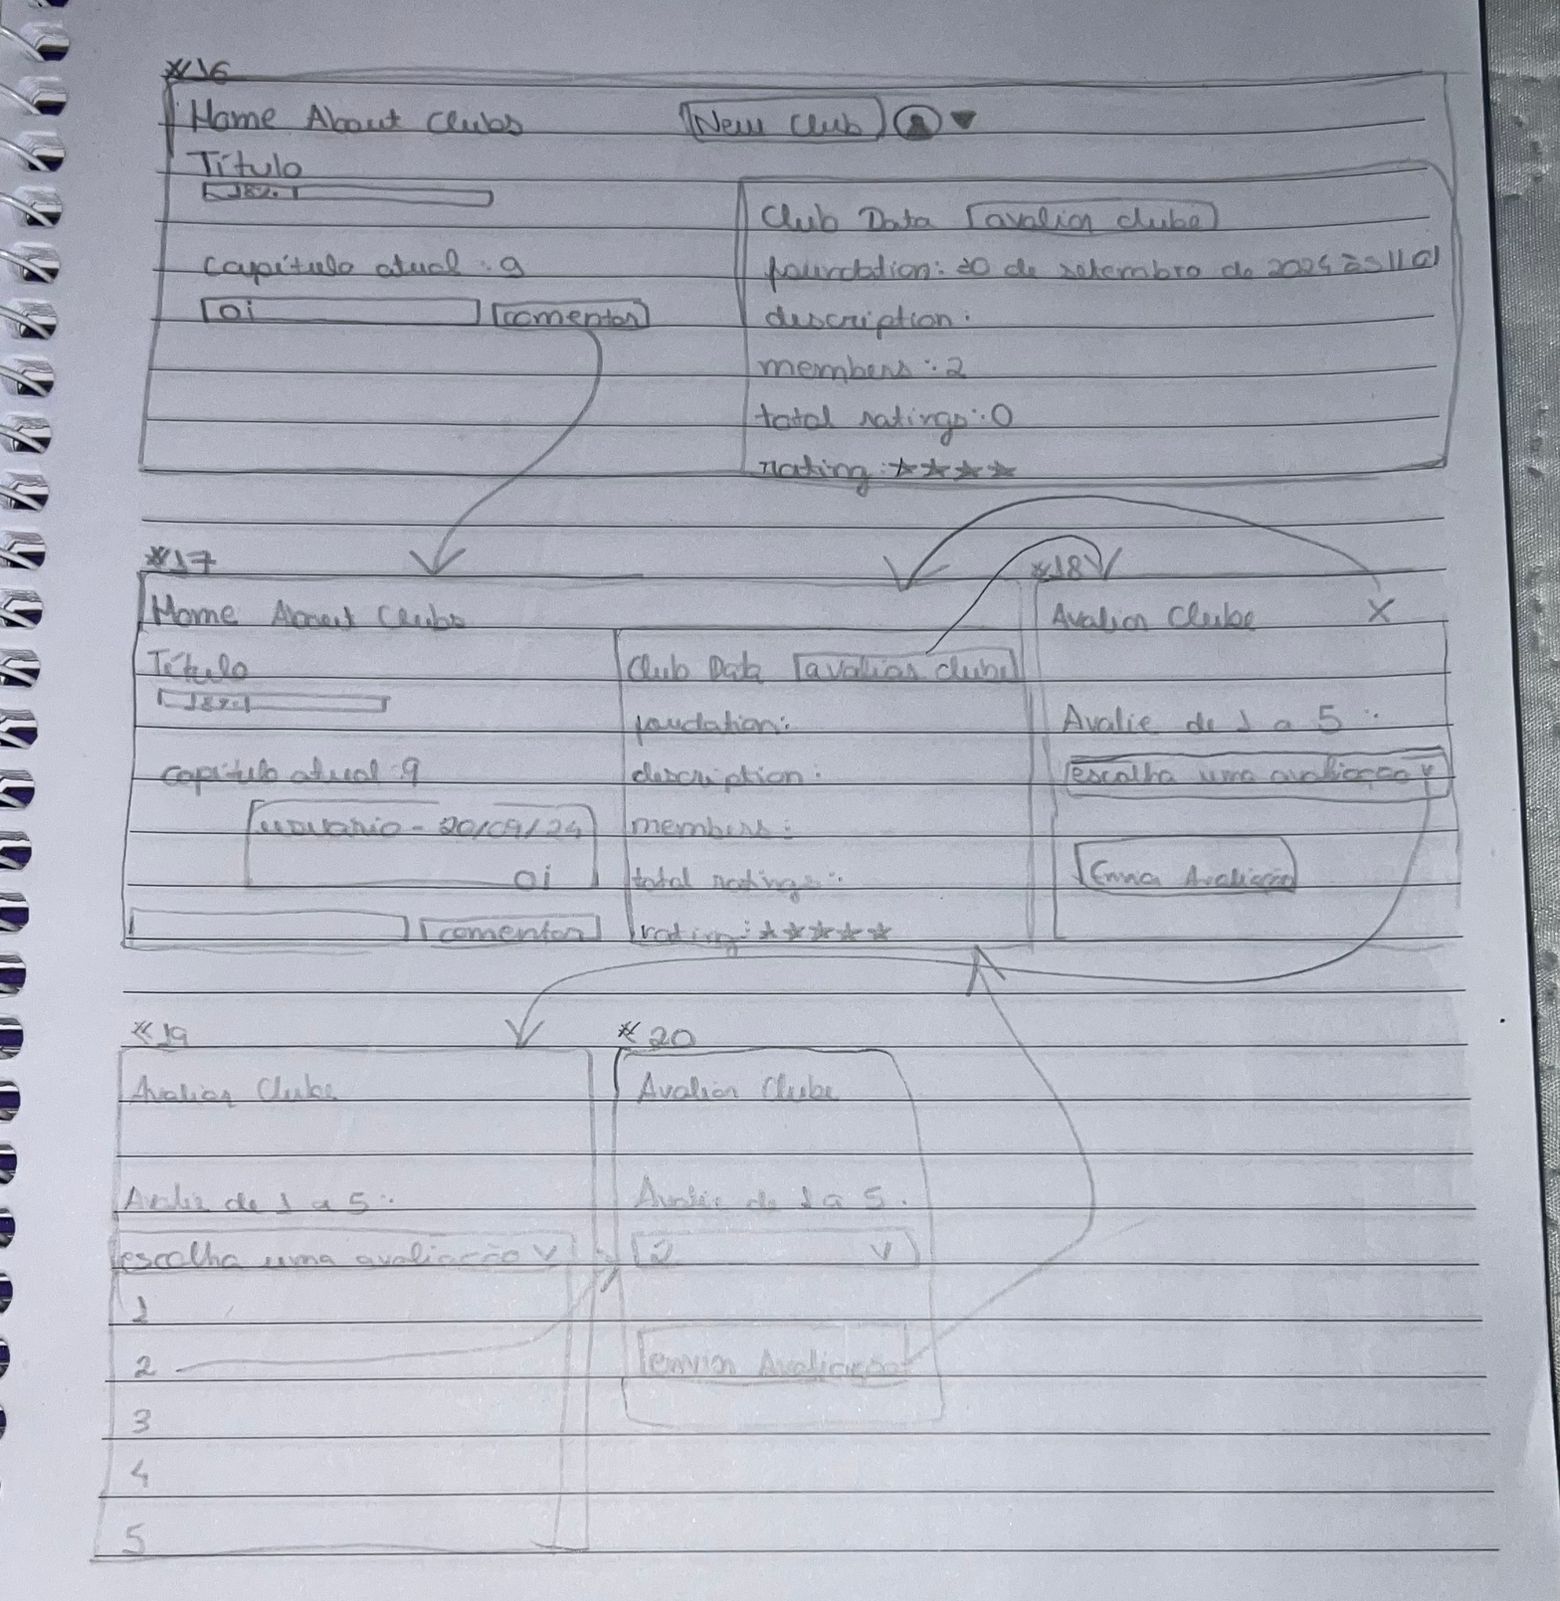 #16
Home About Clubs New Club
Título
18%
capítulo atual: 9
oi comentar
Club Data avaliar clube
foundation: 20 de setembro de 2024 às 11
description:
members: 2
total ratings: 0
rating: ★★★★
#17
Home About Clubs
Título
18%
capítulo atual: 9
usuario - 20/09/24
oi
comentar
Club Data avaliar clube
foudation:
description:
members:
total ratings:
rating: ★★★★★
#18
Avaliar Clube X
Avalie de 1 a 5:
escolha uma avaliação v
Avaliação
#19
Avaliar Clube
Avalie de 1 a 5:
escolha uma avaliação v
1
2
3
4
5
#20
Avaliar Clube
Avalie de 1 a 5:
2 v
enviar Avaliação